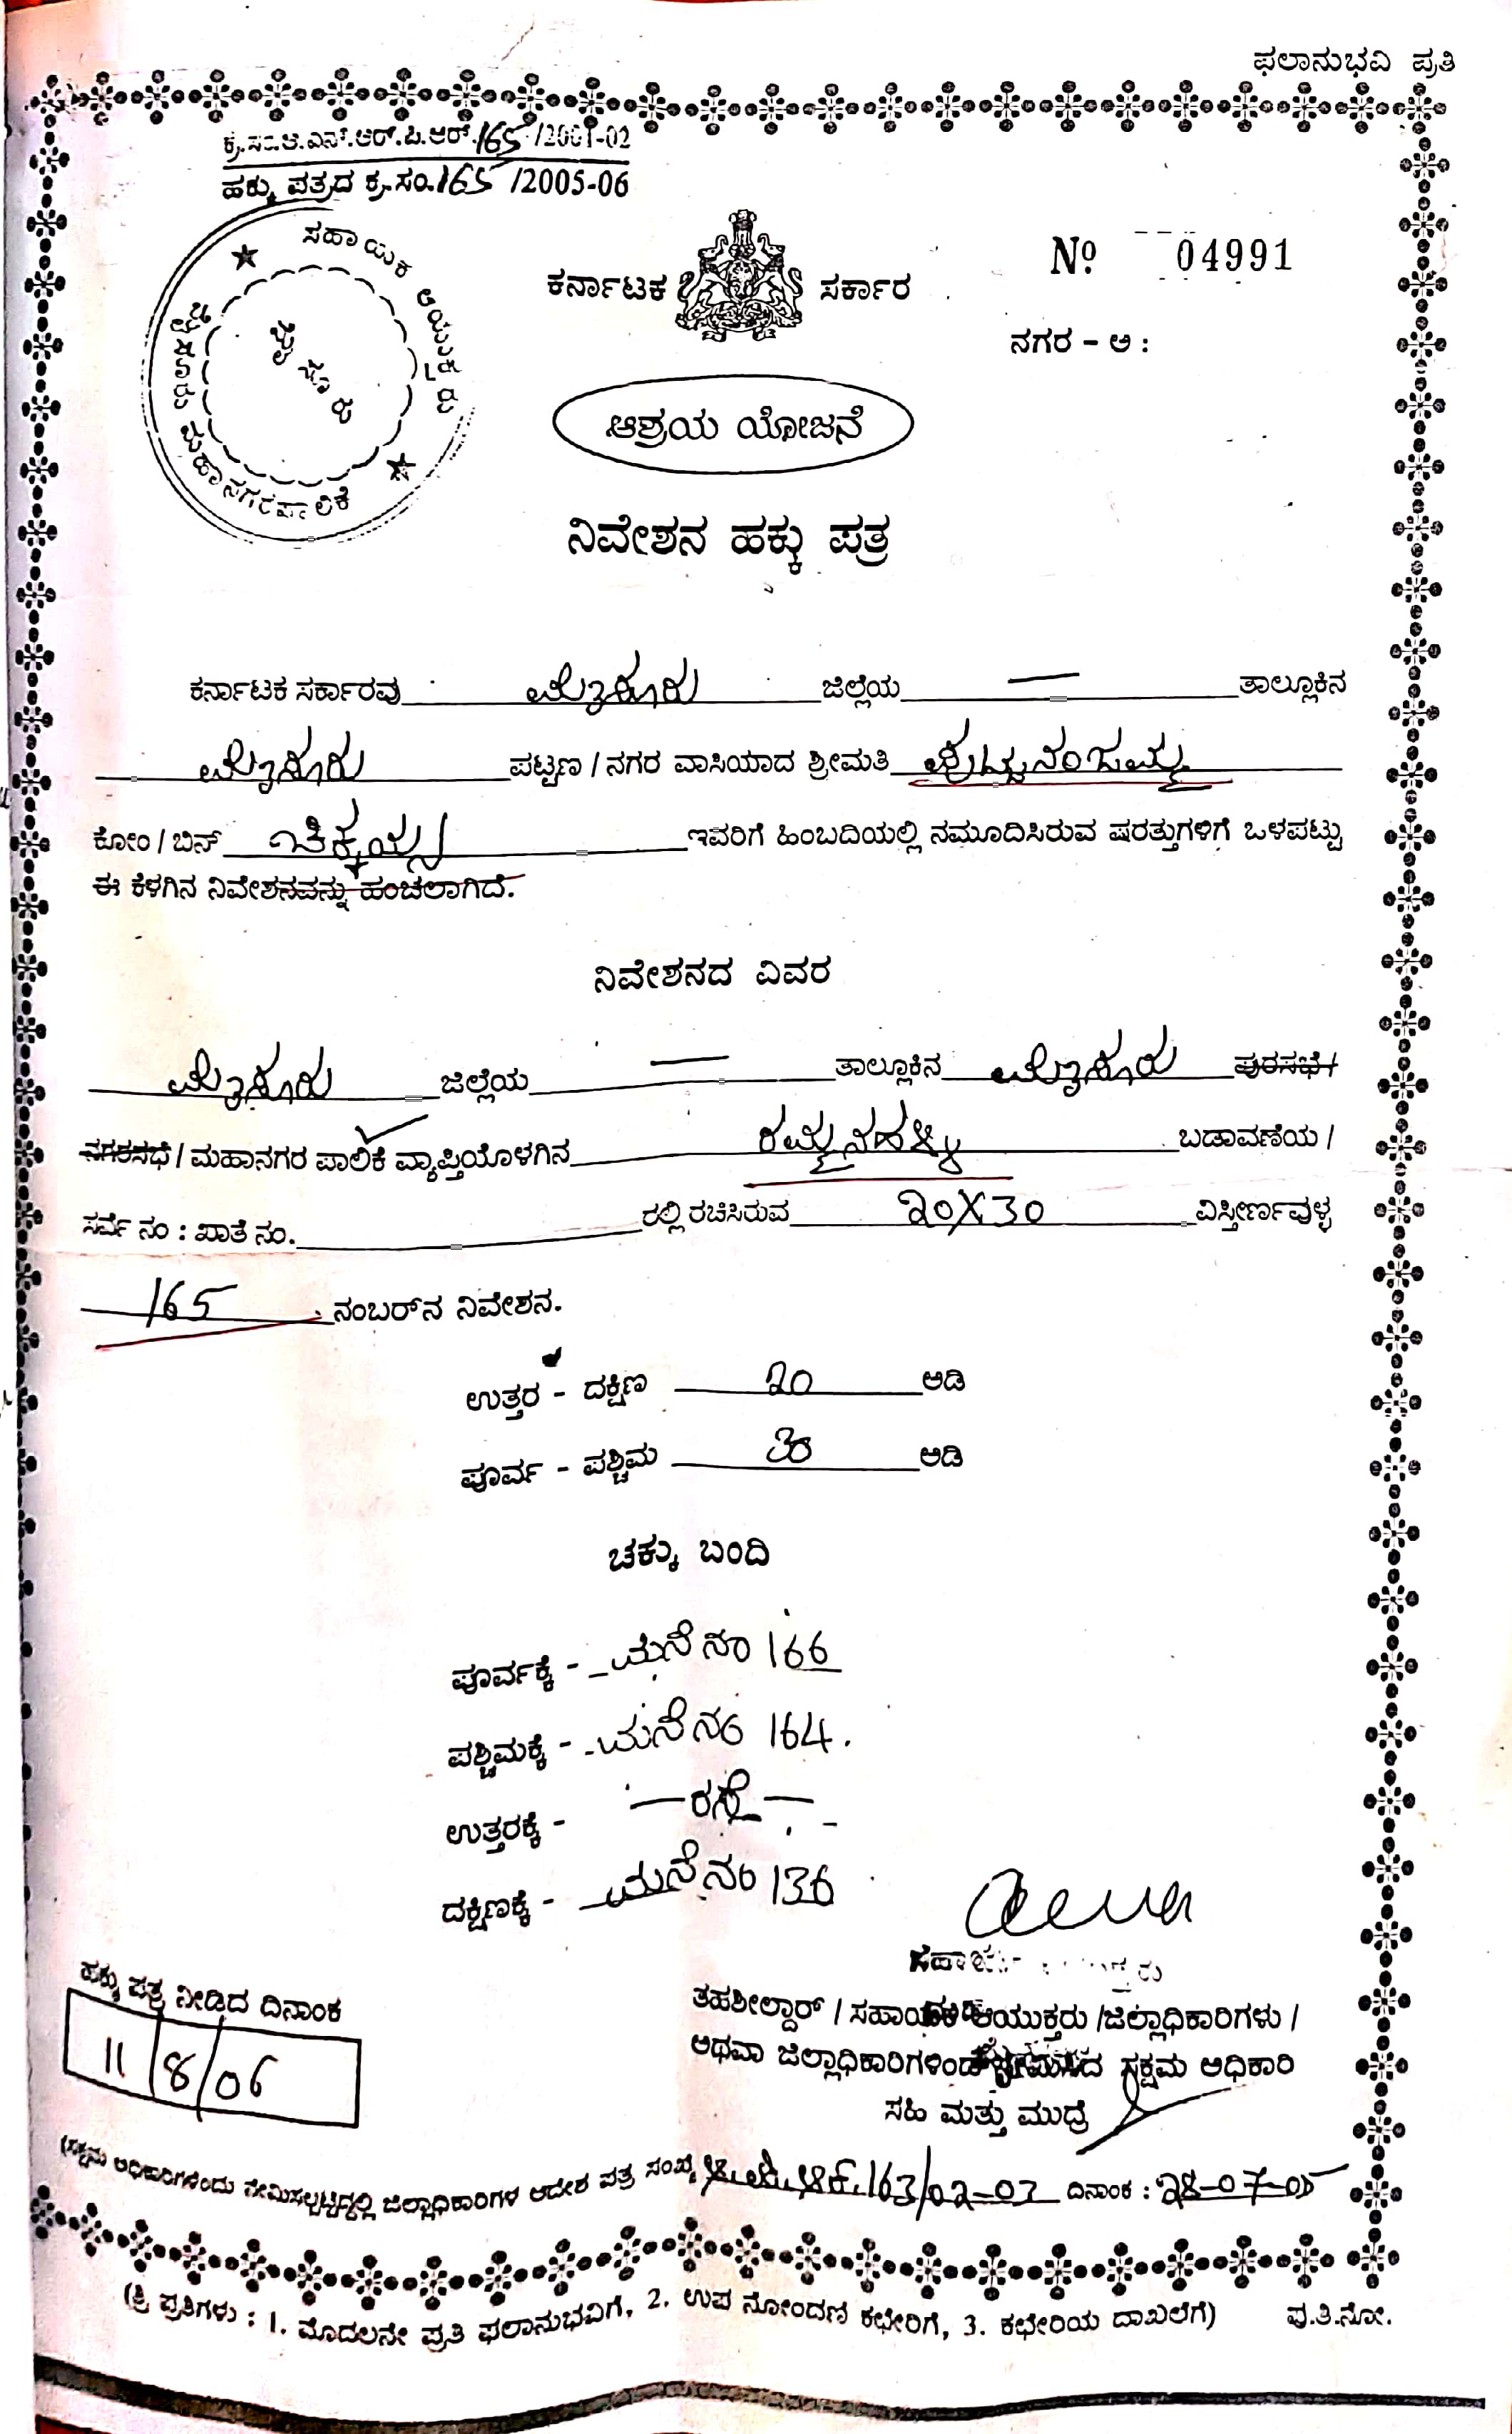 ಫಲಾನುಭವಿ ಪ್ರತಿ
ಕ್ರ.ಸಂ.ಆ.ಎನ್.ಆರ್.ಪಿ.ಆರ್.165/2001-02
ಹಕ್ಕು ಪತ್ರದ ಕ್ರ.ಸಂ.165 /2005-06
ಸಹಾಯಕ ಆಯುಕ್ತರು
ಮೈಸೂರು ಮಹಾನಗರಪಾಲಿಕೆ
ಮೈಸೂರು
ಕರ್ನಾಟಕ ಸರ್ಕಾರ
Nº 04991
ನಗರ - ಅ :
ಆಶ್ರಯ ಯೋಜನೆ
ನಿವೇಶನ ಹಕ್ಕು ಪತ್ರ
ಕರ್ನಾಟಕ ಸರ್ಕಾರವು ಮೈಸೂರು ಜಿಲ್ಲೆಯ — ತಾಲ್ಲೂಕಿನ
ಮೈಸೂರು ಪಟ್ಟಣ / ನಗರ ವಾಸಿಯಾದ ಶ್ರೀಮತಿ ಪುಟ್ಟನಂಜಮ್ಮ
ಕೋಂ / ಬಿನ್ ಚಿಕ್ಕಯ್ಯ ಇವರಿಗೆ ಹಿಂಬದಿಯಲ್ಲಿ ನಮೂದಿಸಿರುವ ಷರತ್ತುಗಳಿಗೆ ಒಳಪಟ್ಟು
ಈ ಕೆಳಗಿನ ನಿವೇಶನವನ್ನು ಹಂಚಲಾಗಿದೆ.
ನಿವೇಶನದ ವಿವರ
ಮೈಸೂರು ಜಿಲ್ಲೆಯ — ತಾಲ್ಲೂಕಿನ ಮೈಸೂರು ಪುರಸಭೆ /
ನಗರಸಭೆ / ಮಹಾನಗರ ಪಾಲಿಕೆ ವ್ಯಾಪ್ತಿಯೊಳಗಿನ ರಮ್ಮನಹಳ್ಳಿ ಬಡಾವಣೆಯ /
ಸರ್ವೆ ನಂ : ಖಾತೆ ನಂ. ರಲ್ಲಿ ರಚಿಸಿರುವ 20X30 ವಿಸ್ತೀರ್ಣವುಳ್ಳ
165 ನಂಬರ್‌ನ ನಿವೇಶನ.
ಉತ್ತರ - ದಕ್ಷಿಣ 20 ಅಡಿ
ಪೂರ್ವ - ಪಶ್ಚಿಮ 30 ಅಡಿ
ಚಕ್ಕು ಬಂದಿ
ಪೂರ್ವಕ್ಕೆ - ಮನೆ ನಂ 166
ಪಶ್ಚಿಮಕ್ಕೆ - ಮನೆ ನಂ 164.
ಉತ್ತರಕ್ಕೆ - —ರಸ್ತೆ—
ದಕ್ಷಿಣಕ್ಕೆ - ಮನೆ ನಂ 136
ಹಕ್ಕು ಪತ್ರ ನೀಡಿದ ದಿನಾಂಕ
11/8/06
ತಹಶೀಲ್ದಾರ್ / ಸಹಾಯಕ ಆಯುಕ್ತರು /ಜಿಲ್ಲಾಧಿಕಾರಿಗಳು /
ಅಥವಾ ಜಿಲ್ಲಾಧಿಕಾರಿಗಳಿಂದ ನೇಮಿಸಿದ ಸಕ್ಷಮ ಅಧಿಕಾರಿ
ಸಹಿ ಮತ್ತು ಮುದ್ರೆ
(ಸಕ್ಷಮ ಅಧಿಕಾರಿಗಳೆಂದು ನೇಮಿಸಲ್ಪಟ್ಟಿದ್ದಲ್ಲಿ ಜಿಲ್ಲಾಧಿಕಾರಿಗಳ ಆದೇಶ ಪತ್ರ ಸಂಖ್ಯೆ 163/02-03 ದಿನಾಂಕ : 28-07-05
(ತ್ರಿ ಪ್ರತಿಗಳು : 1. ಮೊದಲನೇ ಪ್ರತಿ ಫಲಾನುಭವಿಗೆ, 2. ಉಪ ನೋಂದಣಿ ಕಛೇರಿಗೆ, 3. ಕಛೇರಿಯ ದಾಖಲೆಗೆ) ಪು.ತಿ.ನೋ.